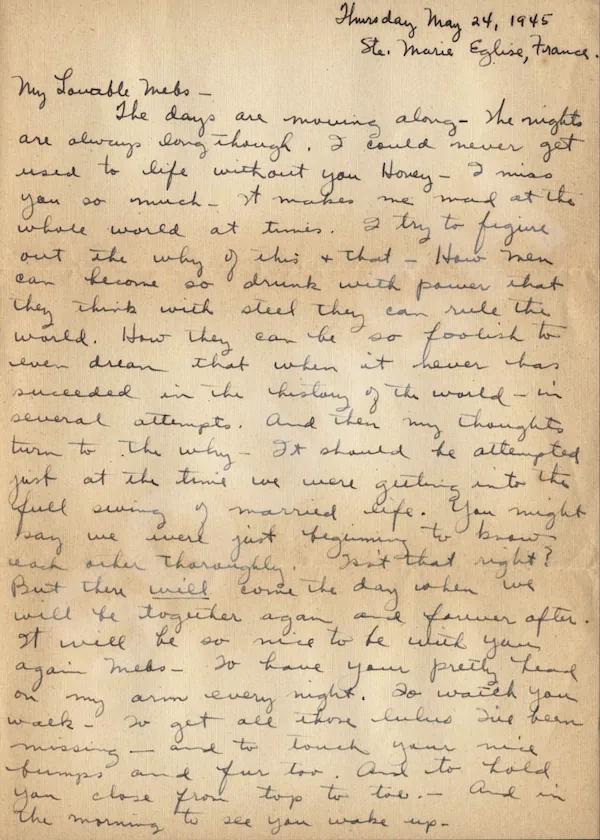 Thursday May 24, 1945
Ste. Marie Eglise, France.
My Lovable Mebs –
The days are moving along – the nights
are always long though. I could never get
used to life without you Honey – I miss
you so much – it makes me mad at the
whole world at times. I try to figure
out the why of this & that – How men
can become so drunk with power that
they think with steel they can rule the
world. How they can be so foolish to
even dream that when it never has
succeeded in the history of the world – in
several attempts. And then my thoughts
turn to the why – It should be attempted
just at the time we were getting into the
full swing of married life. You might
say we were just beginning to know
each other thoroughly. Isn't that right?
But there will come the day when we
will be together again and forever after.
It will be so nice to be with you
again Mebs – To have your pretty head
on my arm every night. To watch you
walk – To get all those lulus I've been
missing – and to touch your nice
bumps and fur too. And to hold
you close from top to toe. – And in
the morning to see you wake up –